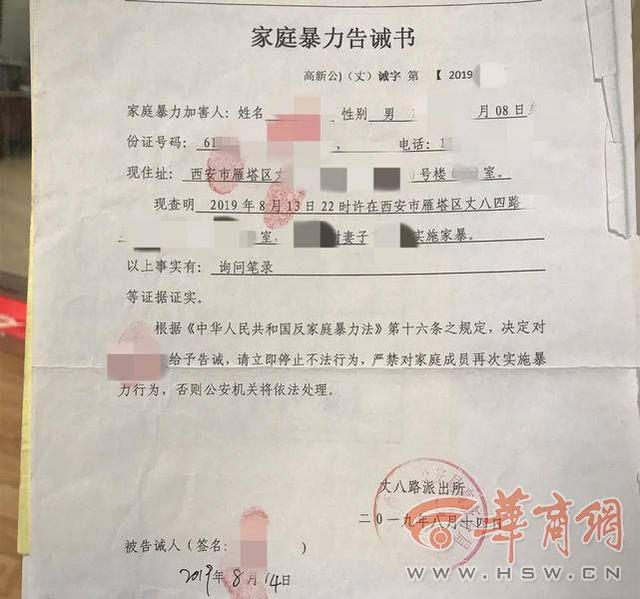 家庭暴力告诫书
高新公)（丈）诫字 第 【 2019
家庭暴力加害人：姓名 性别 男 月 08日
份证号码：61 ， 电话：1
现住址：西安市雁塔区丈 号楼 室。
现查明 2019 年 8 月 13 日 22 时许在西安市雁塔区丈八四路
室， 对妻子 实施家暴。
以上事实有：询问笔录
等证据证实。
根据《中华人民共和国反家庭暴力法》第十六条之规定，决定对
给予告诫，请立即停止不法行为，严禁对家庭成员再次实施暴
力行为，否则公安机关将依法处理。
丈八路派出所
二〇一九年八月十四日
被告诫人（签名： ）
2019年 8月 14日
华商網
WWW.HSW.CN